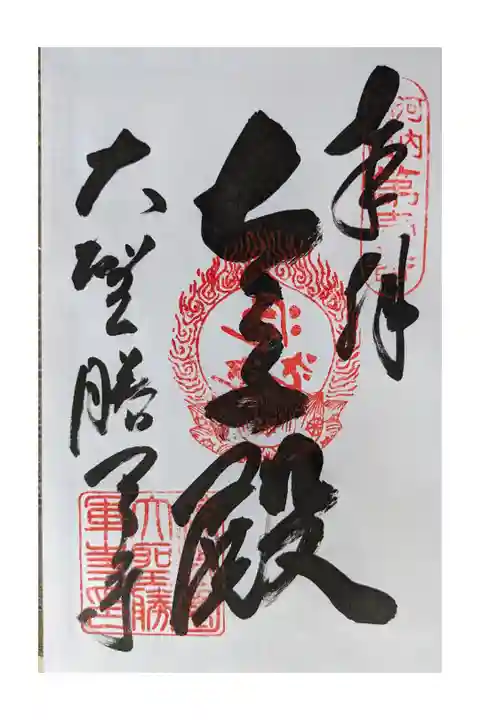 河内第
奉拝
殿
大聖勝軍寺
大聖勝
軍寺印